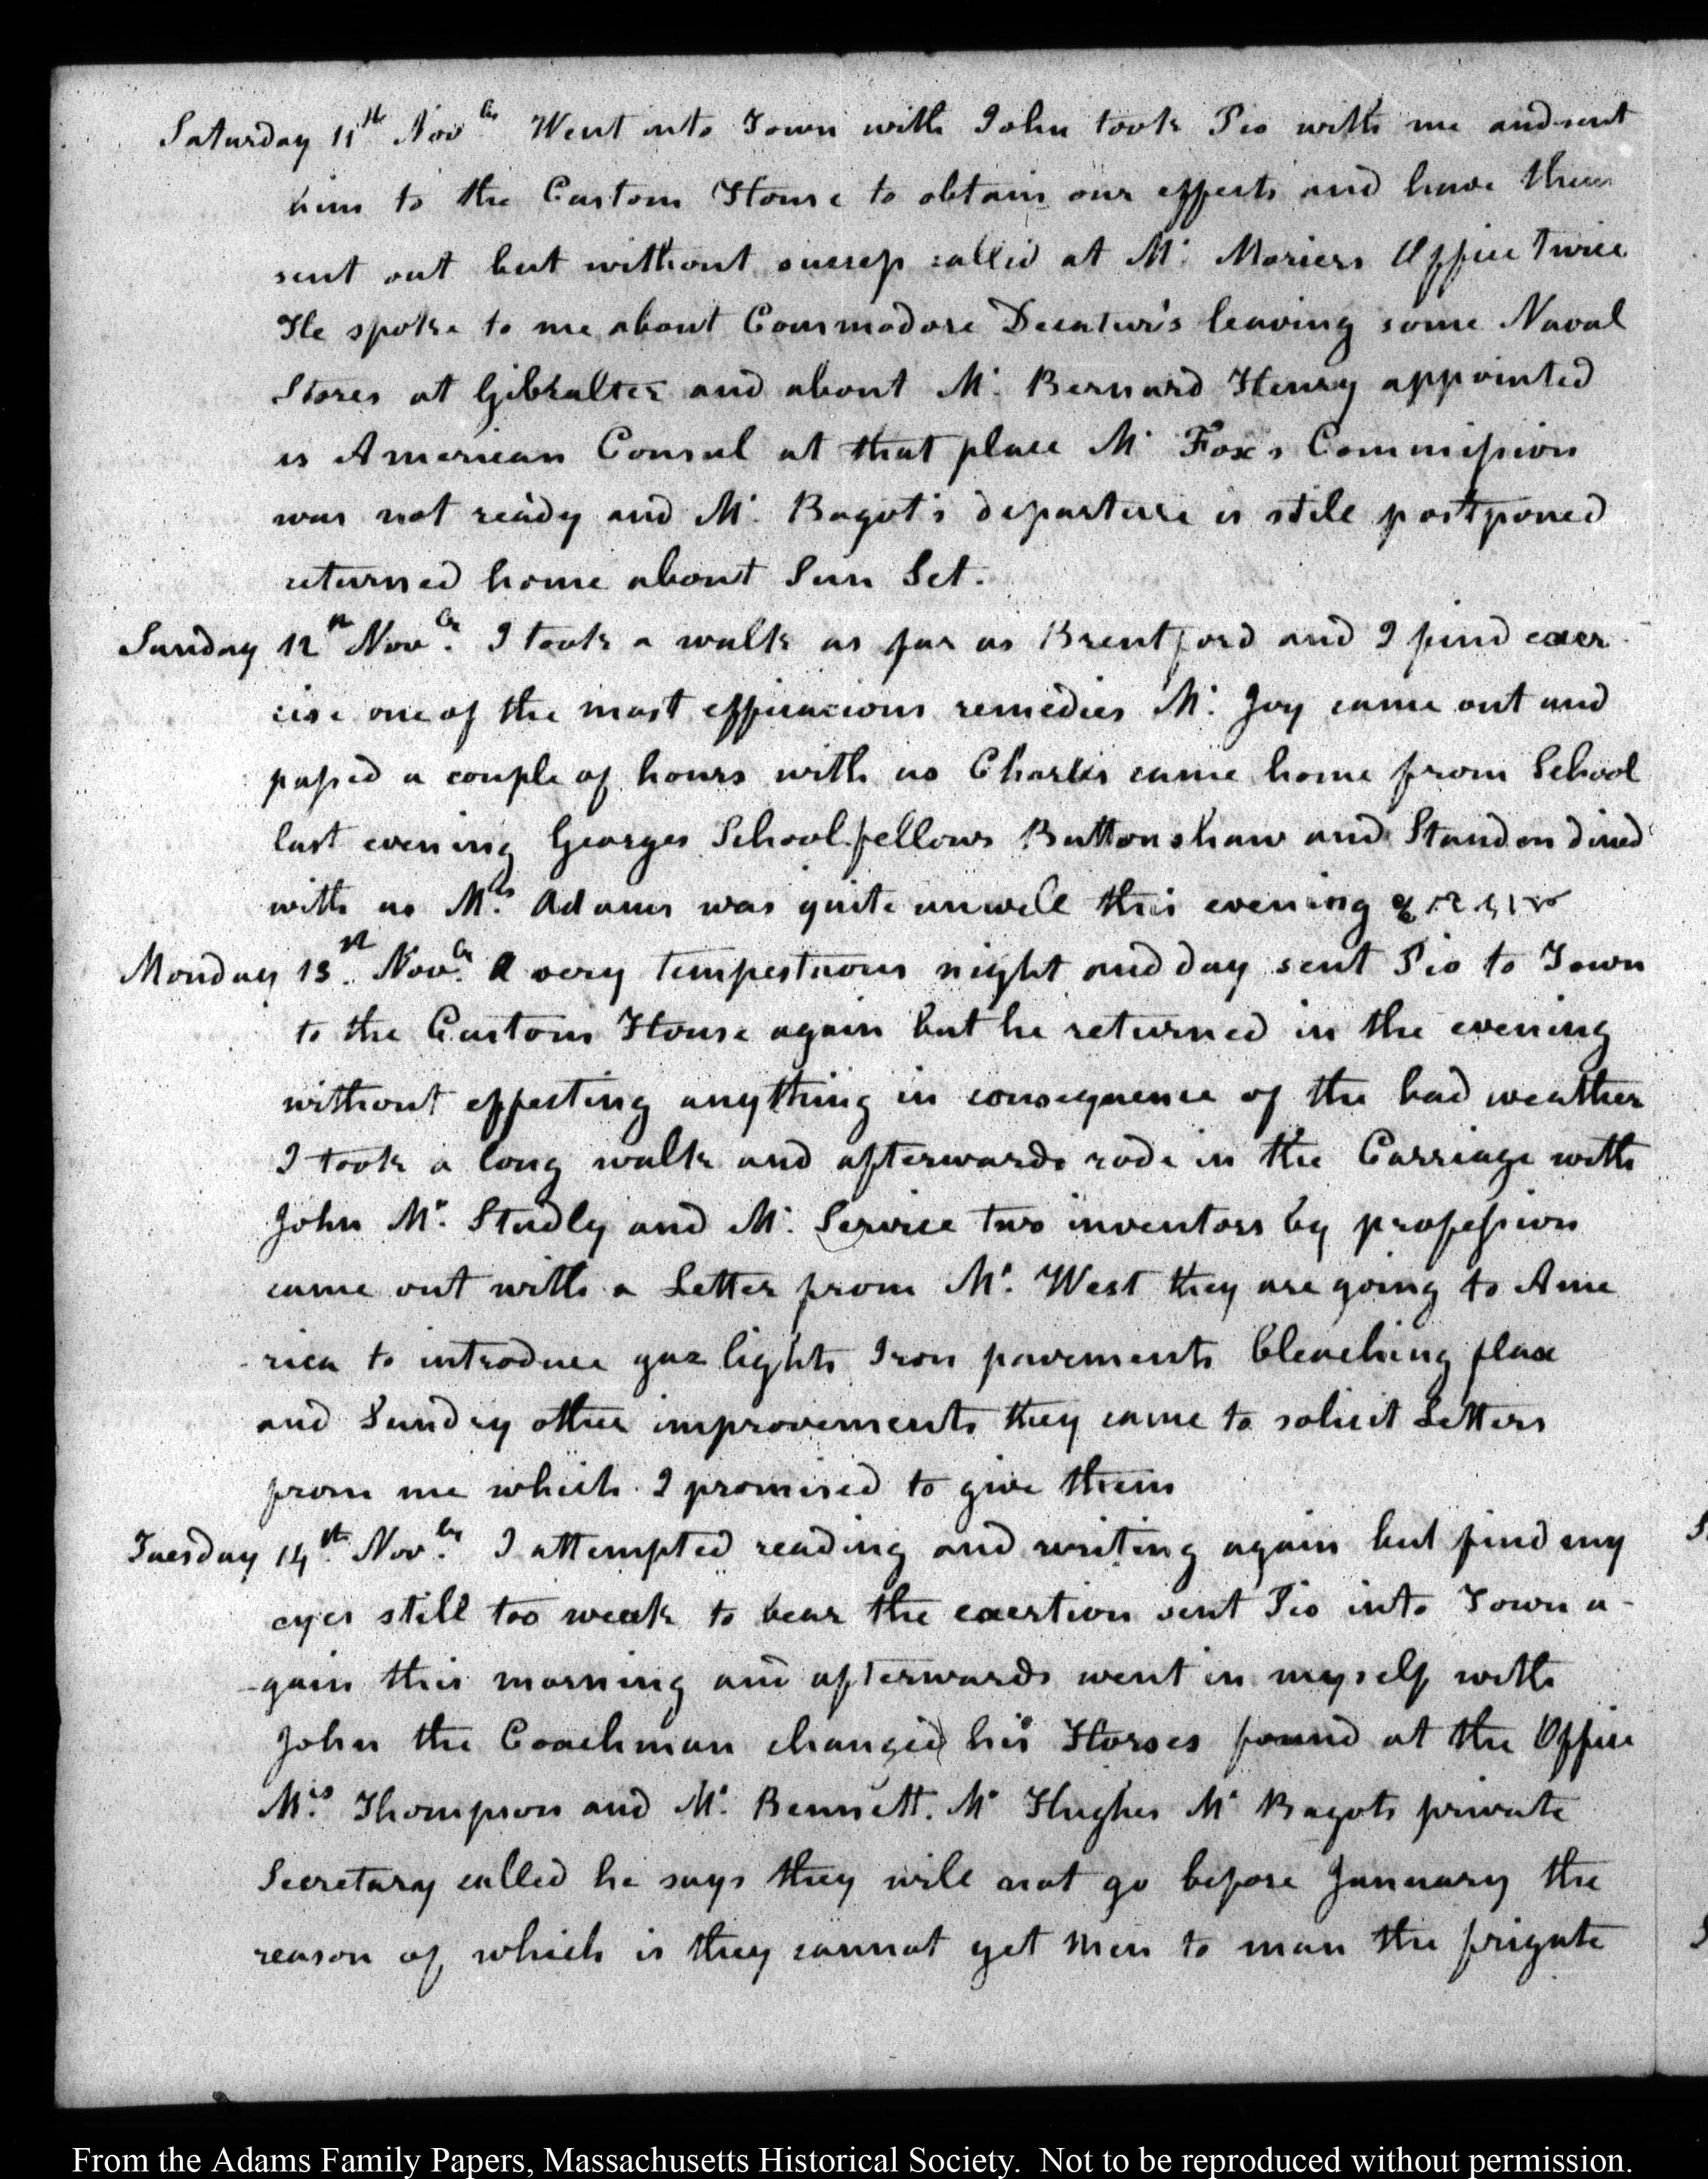 Saturday 11th Novbr Went into Town with John took Pio with me and sent
him to the Custom House to obtain our effects and have them
sent out but without success called at Mr. Moriers Office twice
He spoke to me about Commodore Decatur's leaving some Naval
Stores at Gibralter and about Mr. Bernard Henry appointed
as American Consul at that place Mr Fox's Commission
was not ready and Mr. Bagot's departure is stile postponed
returned home about Sun Set.
Sunday 12th Novbr. I took a walk as far as Brentford and I find exer
cise one of the most efficacious remedies Mr. Joy came out and
passed a couple of hours with us Charles came home from School
last evening Georges School fellows Buttonshaw and Standon dined
with us Mrs. Adams was quite unwell this evening
Monday 13th. Novbr. A very tempestuous night and day sent Pio to Town
to the Custom House again but he returned in the evening
without effecting anything in consequence of the bad weather
I took a long walk and afterwards rode in the Carriage with
John Mr. Studly and Mr. Service two inventors by profession
came out with a Letter from Mr. West they are going to Ame
-rica to introduce gaz lights Iron pavements bleaching flax
and Sundry other improvements they came to solicit Letters
from me which I promised to give them
Tuesday 14th. Novbr. I attempted reading and writing again but find my
eyes still too weak to bear the exertion sent Pio into Town a-
-gain this morning and afterwards went in myself with
John the Coachman changed his Horses found at the Office
Mrs. Thompson and Mr. Bennett. Mr Hughes Mr Bagots private
Secretary called he says they will not go before January the
reason of which is they cannot get Men to man the frigate
From the Adams Family Papers, Massachusetts Historical Society. Not to be reproduced without permission.